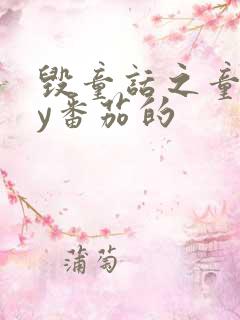 毁童话之童
y番茄的
蒲萄